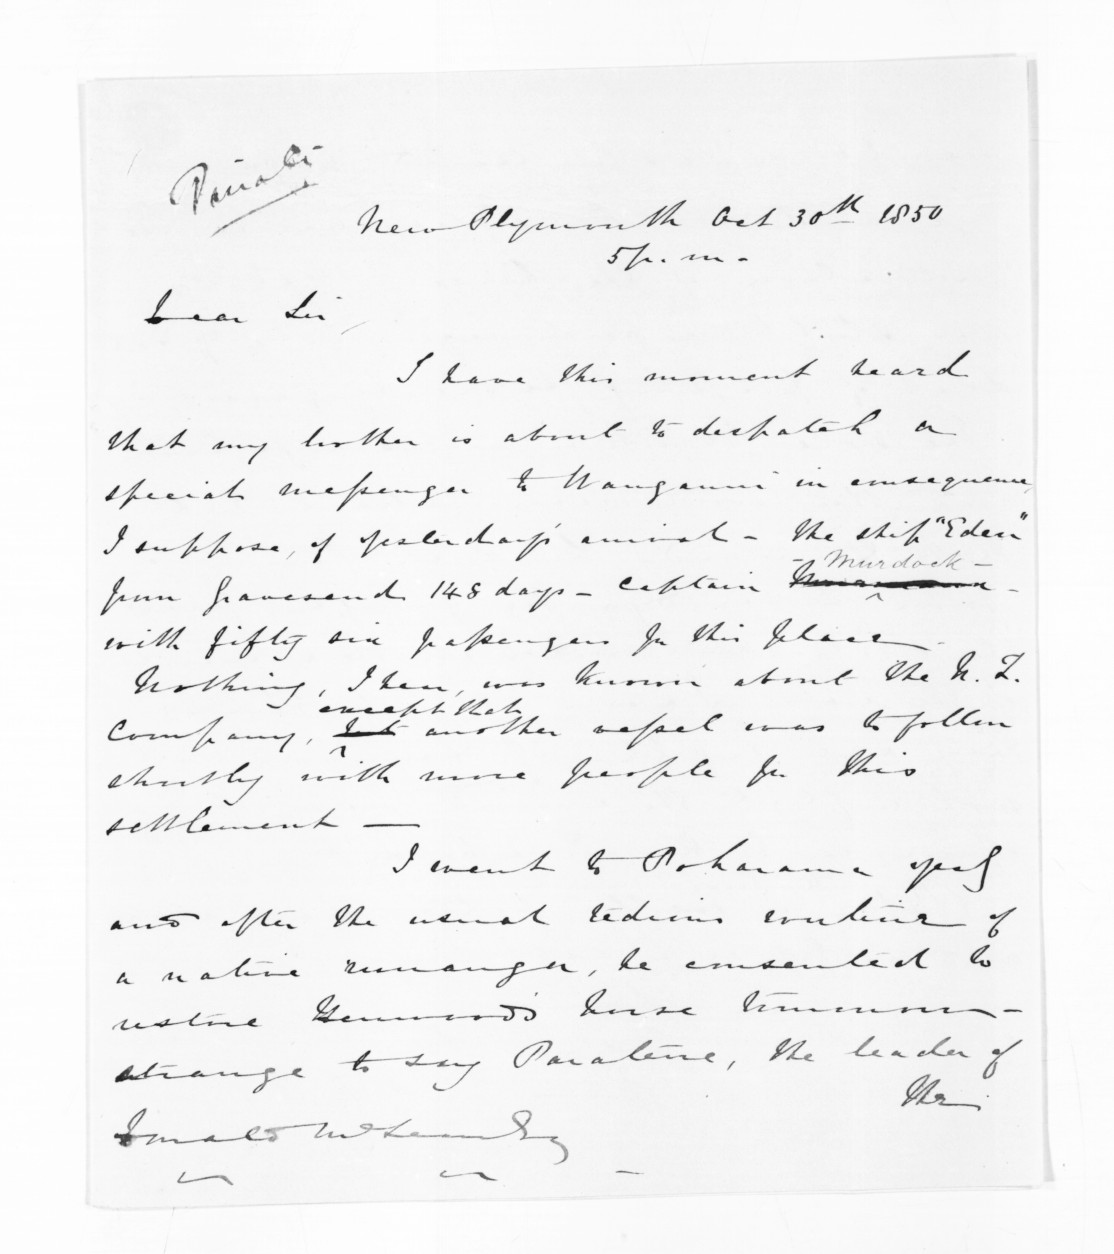 Private
New Plymouth Oct 30th 1850
5 p.m.
Dear Sir,
I have this moment heard
that my brother is about to despatch a
special messenger to Wanganui in consequence,
I suppose, of yesterday's arrival - the ship "Eden"
- Murdock -
from Gravesend 148 days - Captain
with fifty six passengers for this place.
Nothing, I hear, was known about the N. Z.
except that
Company, but another vessel was to follow
shortly with more people for this
settlement —
I went to Pokarama
and after the usual tedious routine of
a native runanga, he consented to
restore Henwood's horse tomorrow -
strange to say Paratene, the leader of
the
Donald McLean Esq